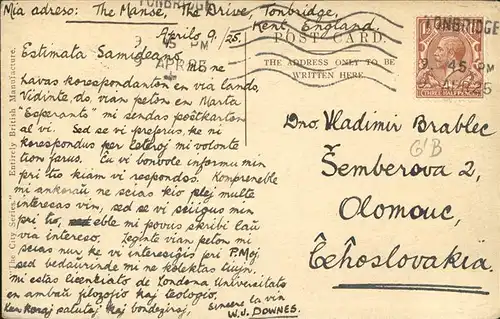 Mia adreso: The Manse, The Drive, Tonbridge,
Kent, England,
Aprilo 9./25.
Estimata Samideano
Mi ne
havas korespondanton en via lando.
Vidinte, do, vian peton en Marta
"Esperanto" mi sendas poŝtkarton
al vi. Sed se vi preferus, ke ni
korespondus per leteroj mi volonte
tion farus. Ĉu vi bonvole informu min
pri tio kiam vi respondos. Kompreneble
mi ankoraŭ ne scias kio plej multe
interesas vin, sed se vi sciigus min
pri tio, eble mi povus skribi laŭ
via intereso. Leginte vian peton mi
scias nur ke vi interesiĝis pri P.M.oj
sed bedaŭrinde mi ne kolektas tiujn.
Mi estas licenciato de Londona Universitato
en ambaŭ filozofio kaj teologio.
Kun koraj salutoj kaj bondeziroj,
Sincere la vin
W.J. DOWNES.
"The City Series." Entirely British Manufacture.
POST CARD.
THE ADDRESS ONLY TO BE
WRITTEN HERE.
TONBRIDGE
45 PM
9 APR 25
TONBRIDGE
45 PM
THREE HALFPENCE
Dro. Vladimir Brablec
G'B
Ŝemberova 2,
Olomouc,
Ĉeĥoslovakia.